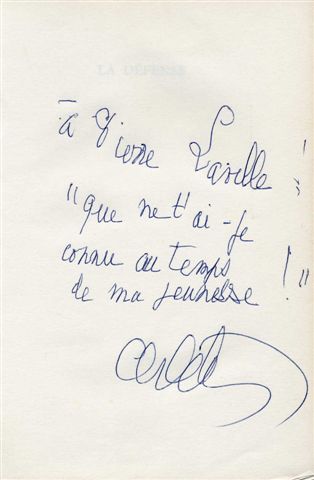 LA DÉFENSE
à Pierre Laville :
"que ne t'ai-je
connu au temps
de ma jeunesse !"